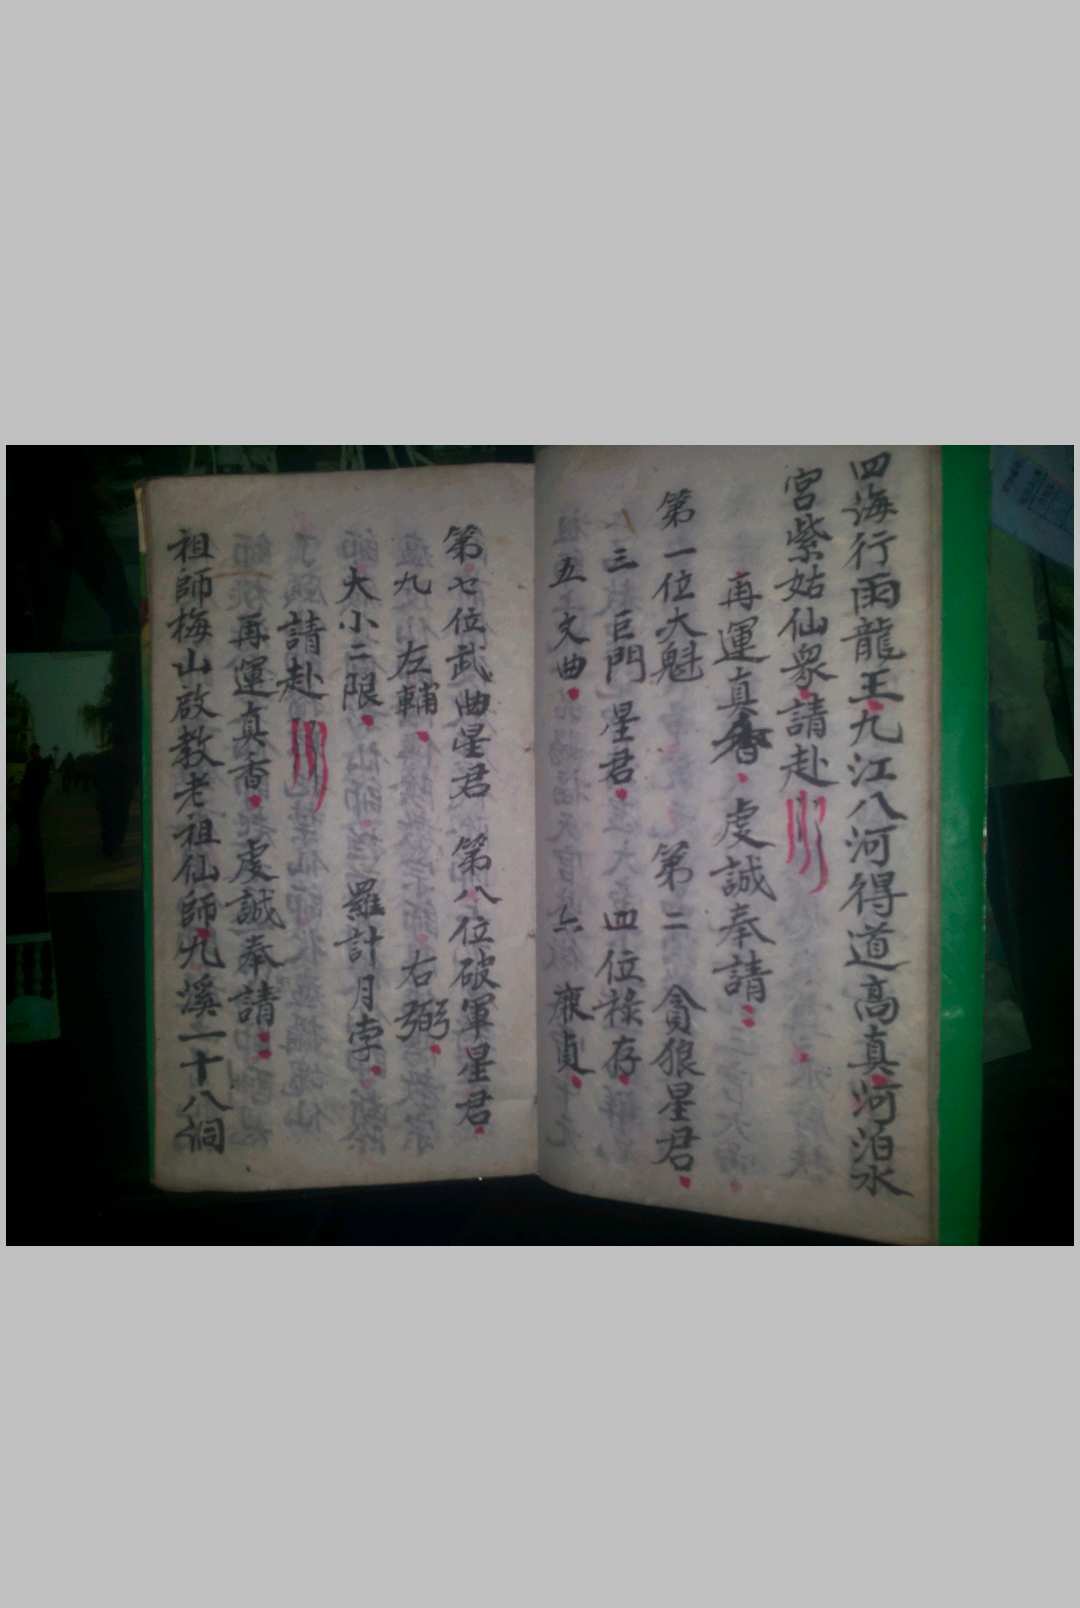 四海行雨龍王九江八河得道高真河泊水
宮紫姑仙衆請赴
再運真香虔誠奉請
第一位大魁 第二 貪狼星君
三 巨門 星君 四位祿存
五文曲 六 㢘貞
第七位武曲星君 第八位破軍星君
九 左輔 右弼
大小二限 羅計月孛
請赴
再運真香虔誠奉請
祖師梅山啟教老祖仙師九溪二十八洞